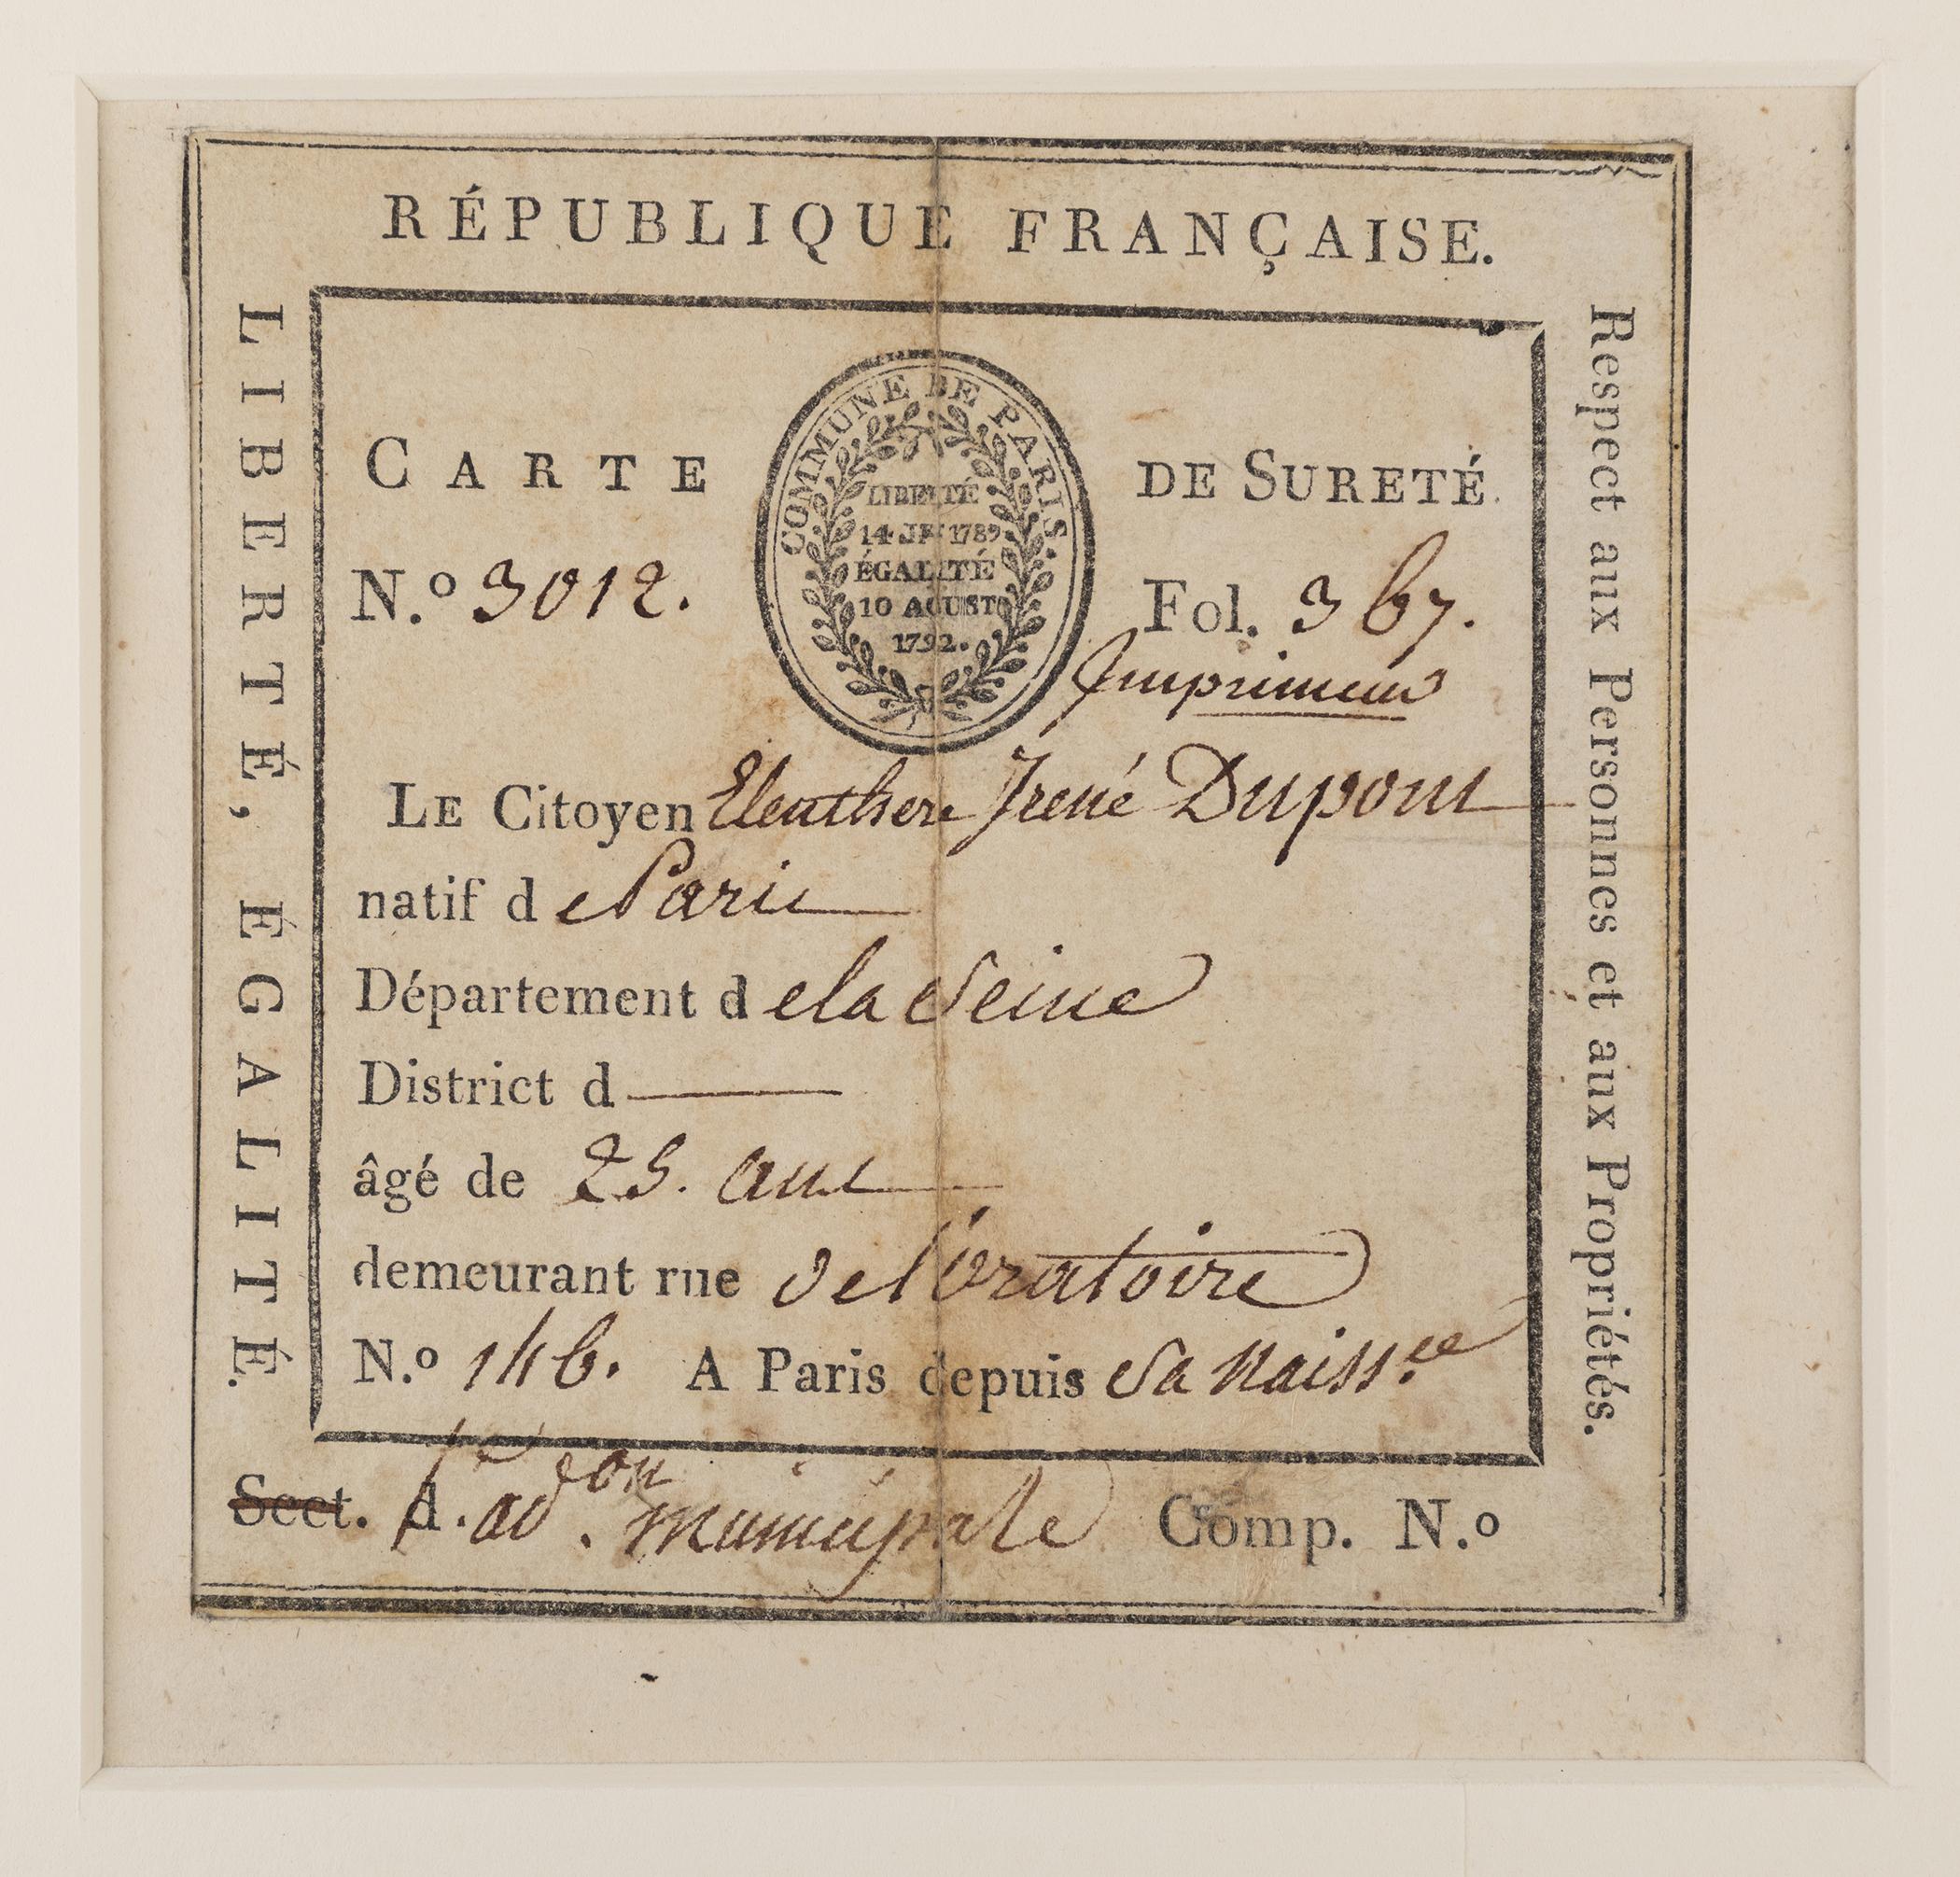 RÉPUBLIQUE FRANÇAISE.
LIBERTÉ, ÉGALITÉ.
Respect aux Personnes et aux Propriétés.
COMMUNE DE PARIS.
LIBERTÉ
14 JT 1789
ÉGALITÉ
10 AOUST
1792.
CARTE DE SURETÉ.
N.º 3012. Fol. 367.
Imprimeur
LE Citoyen Eleuthere Irené Dupont
natif de Paris
Département de la Seine
District d
âgé de 25. ans
demeurant rue de l'oratoire
N.º 146. A Paris depuis Sa Naiss.ce
Sect. d. ad.on municipale Comp. N.º